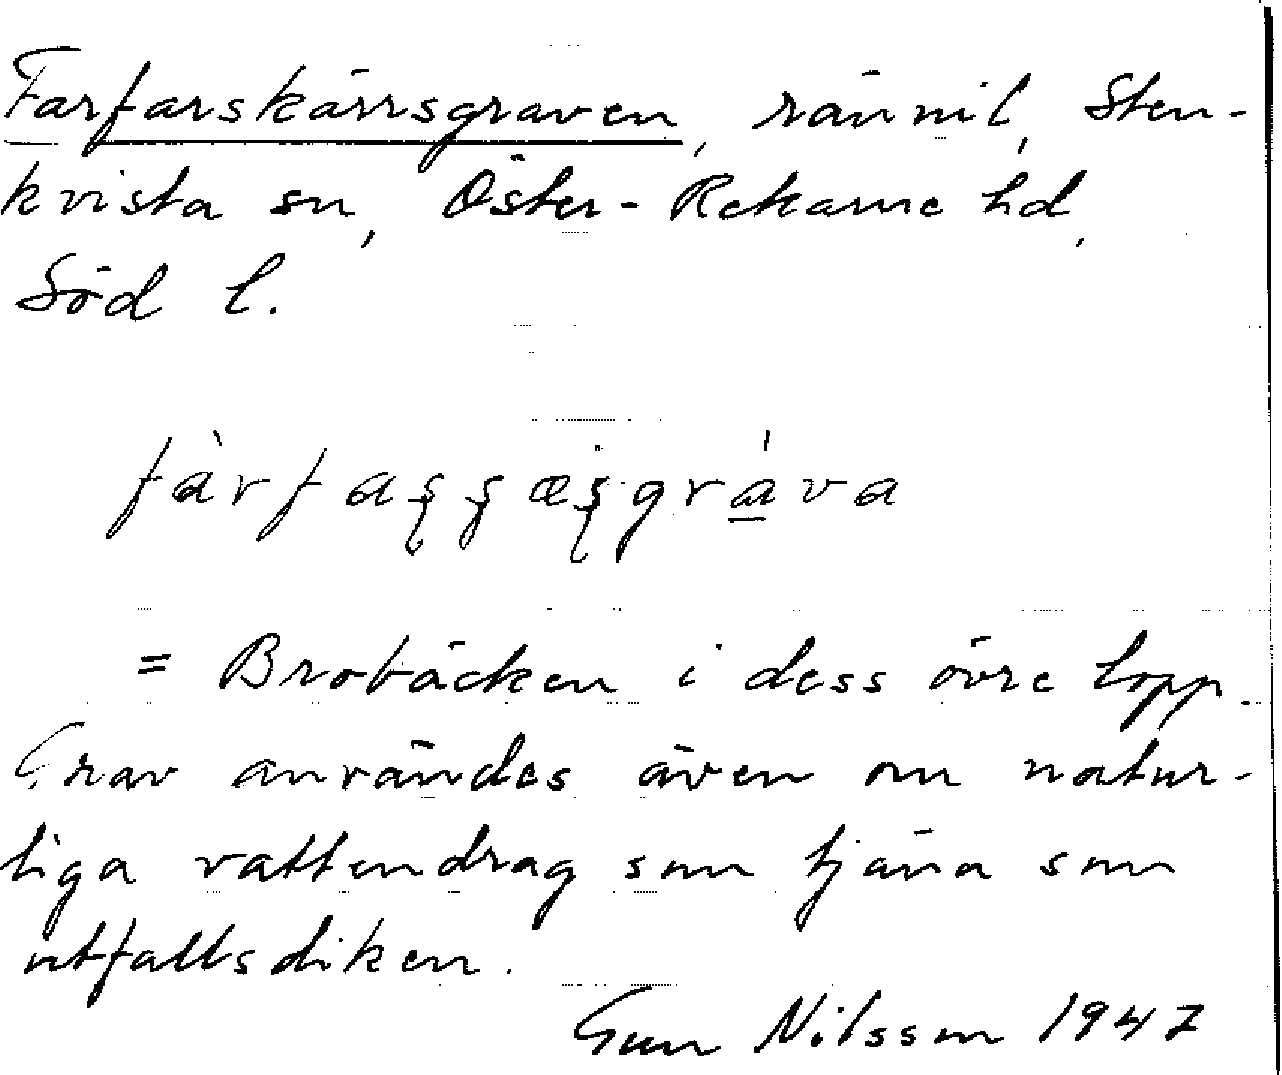 Farfarskärrsgraven, rännil, Sten-
kvista sn, Öster-Rekarne hd,
Söd l.
fàrfaʂʂæʂgráva
= Brobäcken i dess övre lopp.
Grav användes även om natur-
liga vattendrag som tjäna som
utfallsdiken.
Gun Nilsson 1947